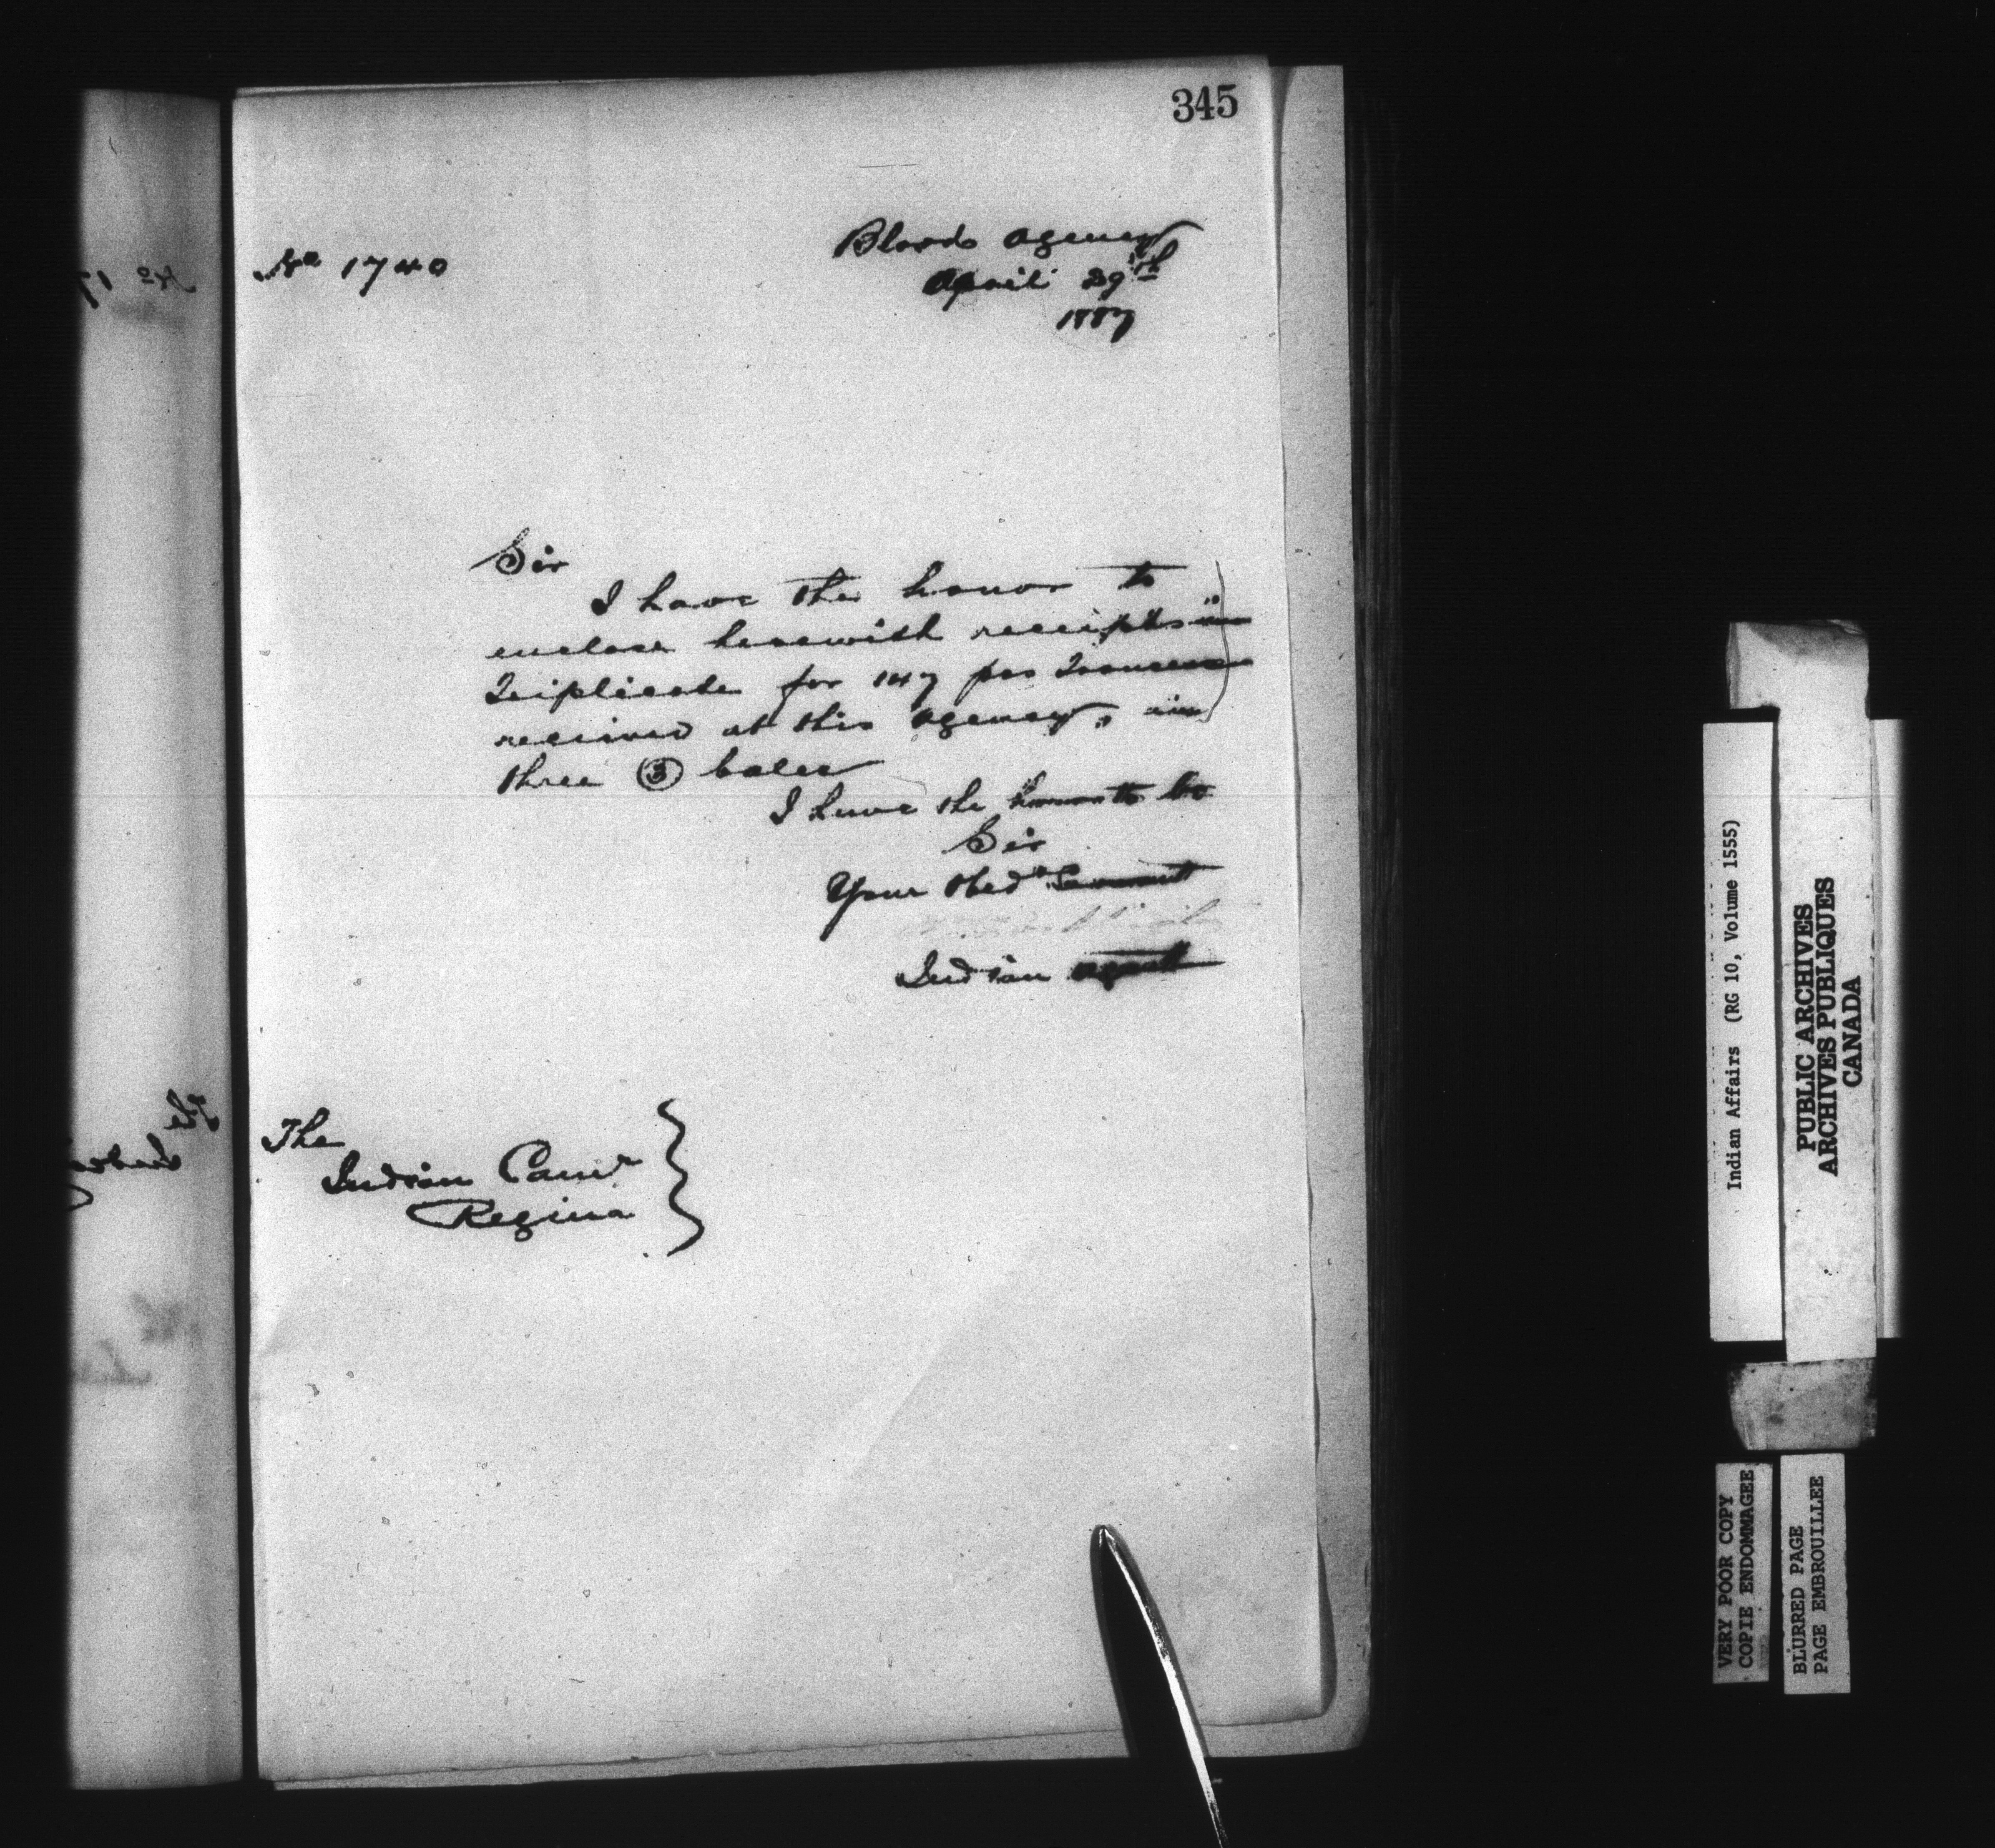 345
No 1740
Bloods Agency
April 29th
1887
Sir
I have the honor to
enclose herewith receipts in
Triplicate for 147 prs Trousers
received at this Agency, in
three (3) bales
I have the honor to be
Sir
Your Obed Servant
Indian Agent
The
Indian Comr
Regina
Indian Affairs (RG 10, Volume 1555)
PUBLIC ARCHIVES
ARCHIVES PUBLIQUES
CANADA
VERY POOR COPY
COPIE ENDOMMAGEE
BLURRED PAGE
PAGE EMBROUILLEE